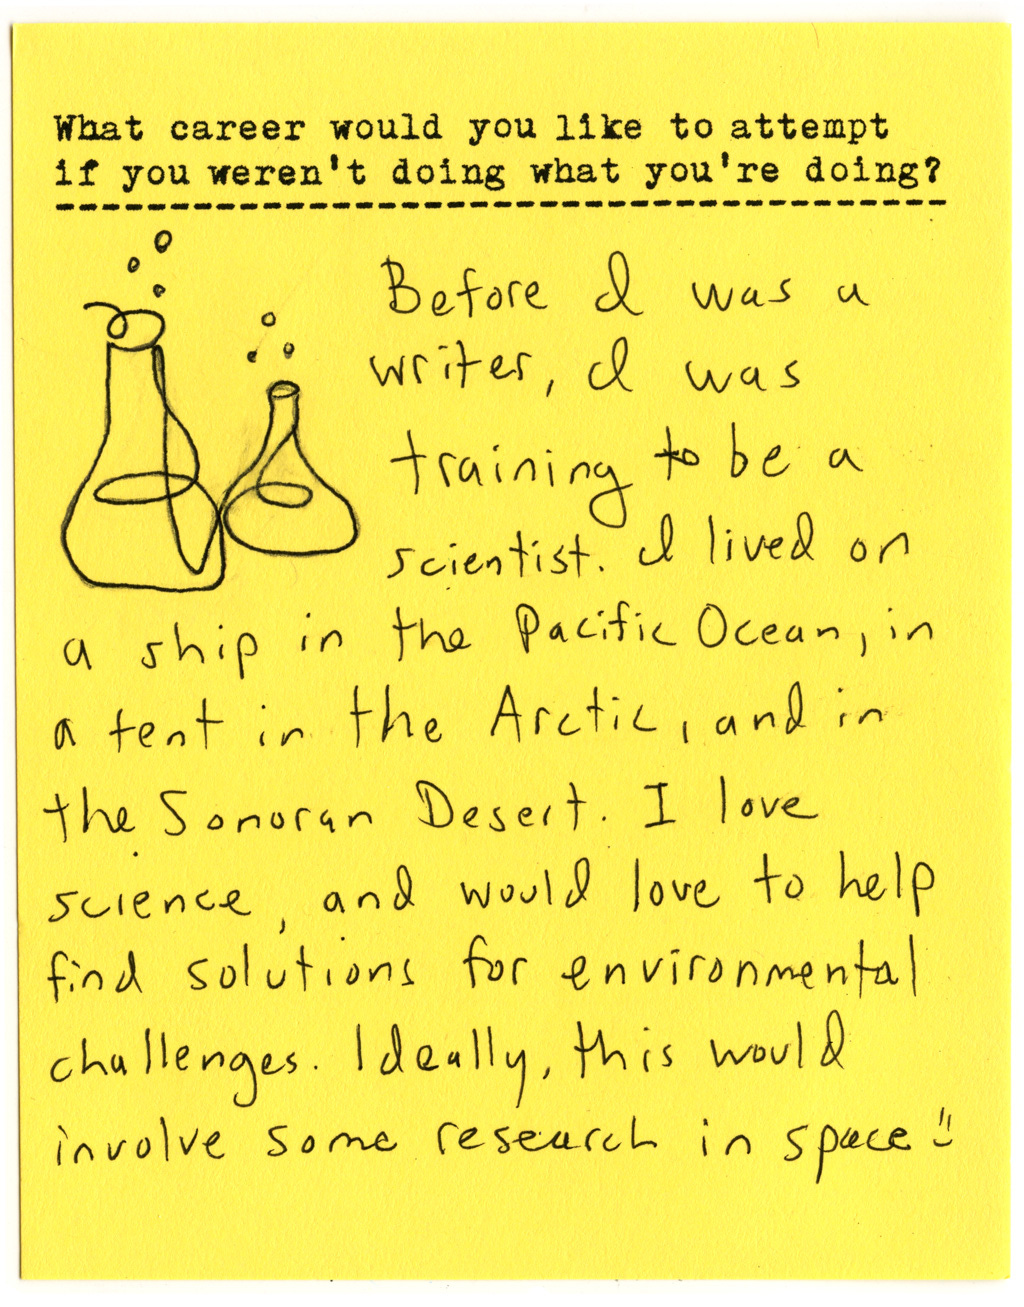 What career would you like to attempt
if you weren't doing what you're doing?
Before I was a
writer, I was
training to be a
scientist. I lived on
a ship in the Pacific Ocean, in
a tent in the Arctic, and in
the Sonoran Desert. I love
science, and would love to help
find solutions for environmental
challenges. Ideally, this would
involve some research in space